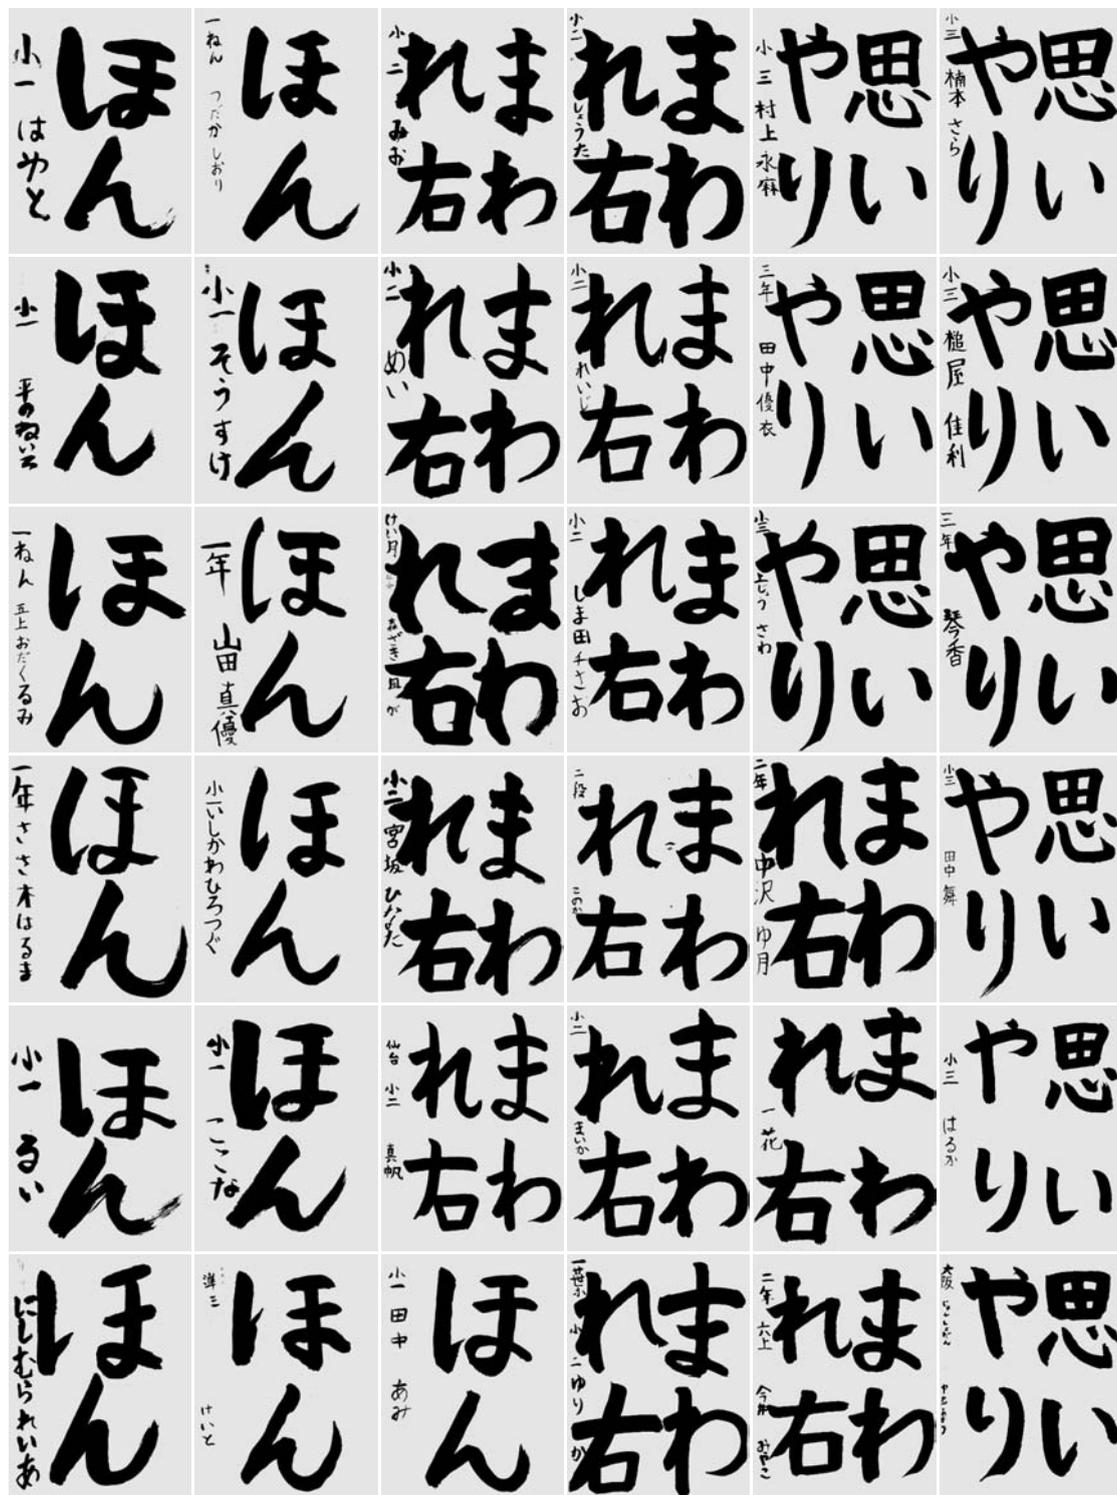 ほん
小一 はやと
ほん
一ねん つだか しおり
まわ
れ右
小二 みお
まわ
れ右
小二 しょうた
思い
やり
小三 村上 永麻
思い
やり
小三 楠本 さら
ほん
小一
ほん
小一 そうすけ
まわ
れ右
小二 めい
まわ
れ右
小二 れいじ
思い
やり
三年 田中優衣
思い
やり
小三 槌屋 佳利
ほん
一ねん 五上 おだくるみ
ほん
一年 山田真優
まわ
れ右
まわ
れ右
小二 しま田 チさお
思い
やり
小三 さわ
思い
やり
三年 琴香
ほん
一年 ささ木はるま
ほん
小一いしかわひろつぐ
まわ
れ右
小二 宮坂 ひなた
まわ
れ右
二段 このか
まわ
れ右
二年 中沢 ゆ月
思い
やり
小三 田中 舞
ほん
小一 るい
ほん
小一 ここな
まわ
れ右
仙台 小二 真帆
まわ
れ右
小二 まいか
まわ
れ右
一花
思い
やり
小三 はるか
ほん
にしむられいあ
ほん
準三 けいと
ほん
小一 田中 あみ
まわ
れ右
小二 ゆりか
まわ
れ右
二年 六上 今井 みやこ
思い
やり
大阪